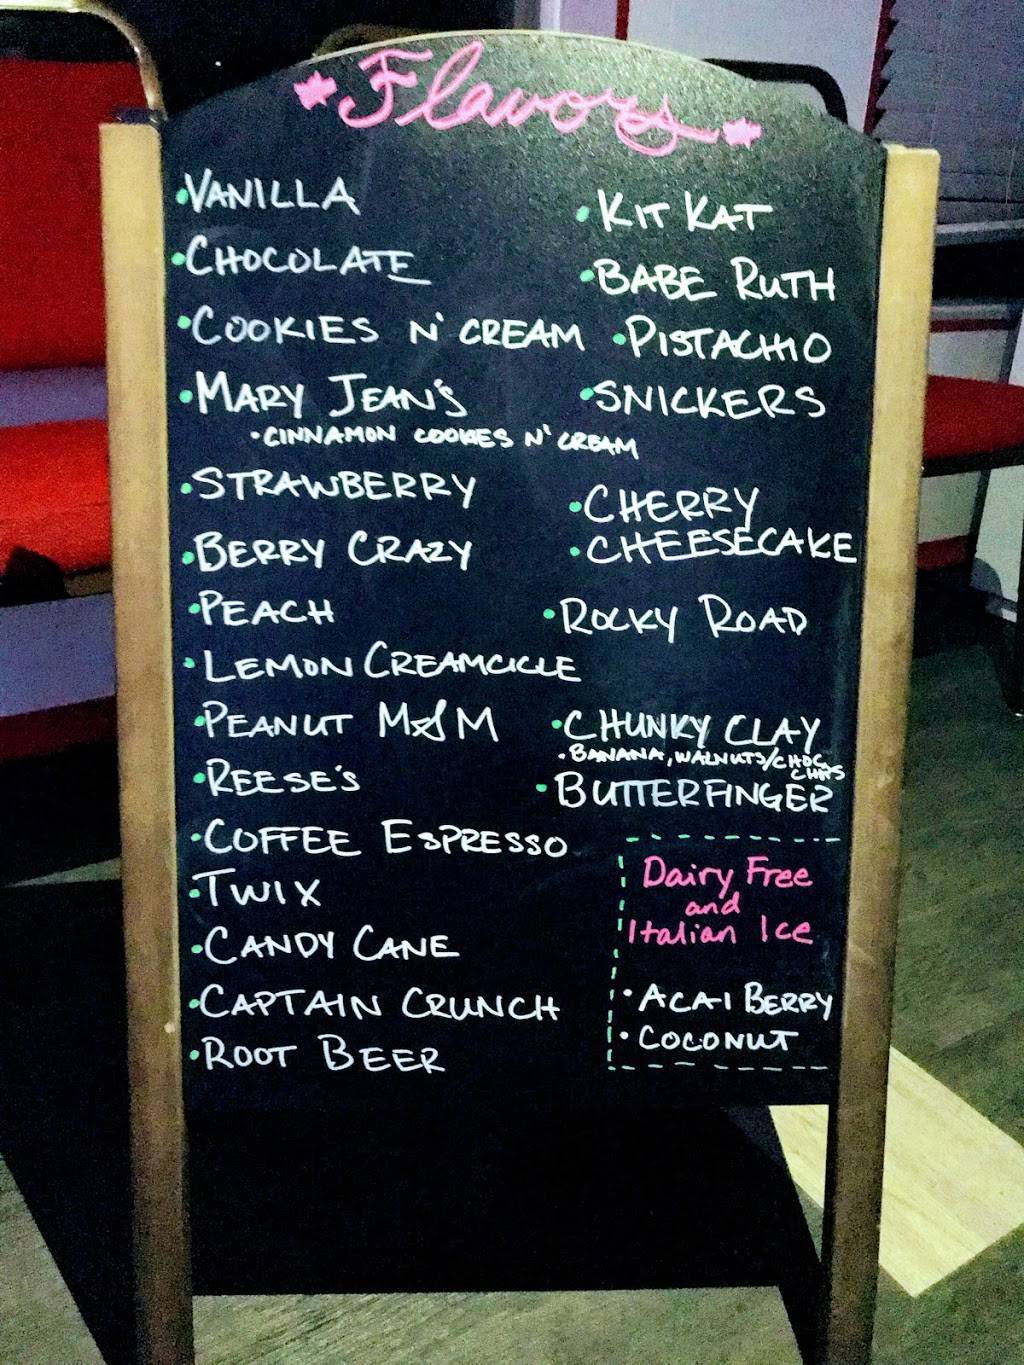 Flavors
•VANILLA
•CHOCOLATE
•COOKIES N' CREAM
•MARY JEAN'S
•CINNAMON COOKIES N' CREAM
•STRAWBERRY
•BERRY CRAZY
•PEACH
•LEMON CREAMCICLE
•PEANUT M&M
•REESE'S
•COFFEE ESPRESSO
•TWIX
•CANDY CANE
•CAPTAIN CRUNCH
•ROOT BEER
•KIT KAT
•BABE RUTH
•PISTACHIO
•SNICKERS
•CHERRY
•CHEESECAKE
•ROCKY ROAD
•CHUNKY CLAY
•BANANA, WALNUTS/CHOC
CHIPS
•BUTTERFINGER
Dairy Free
and
Italian Ice
•ACAI BERRY
•COCONUT